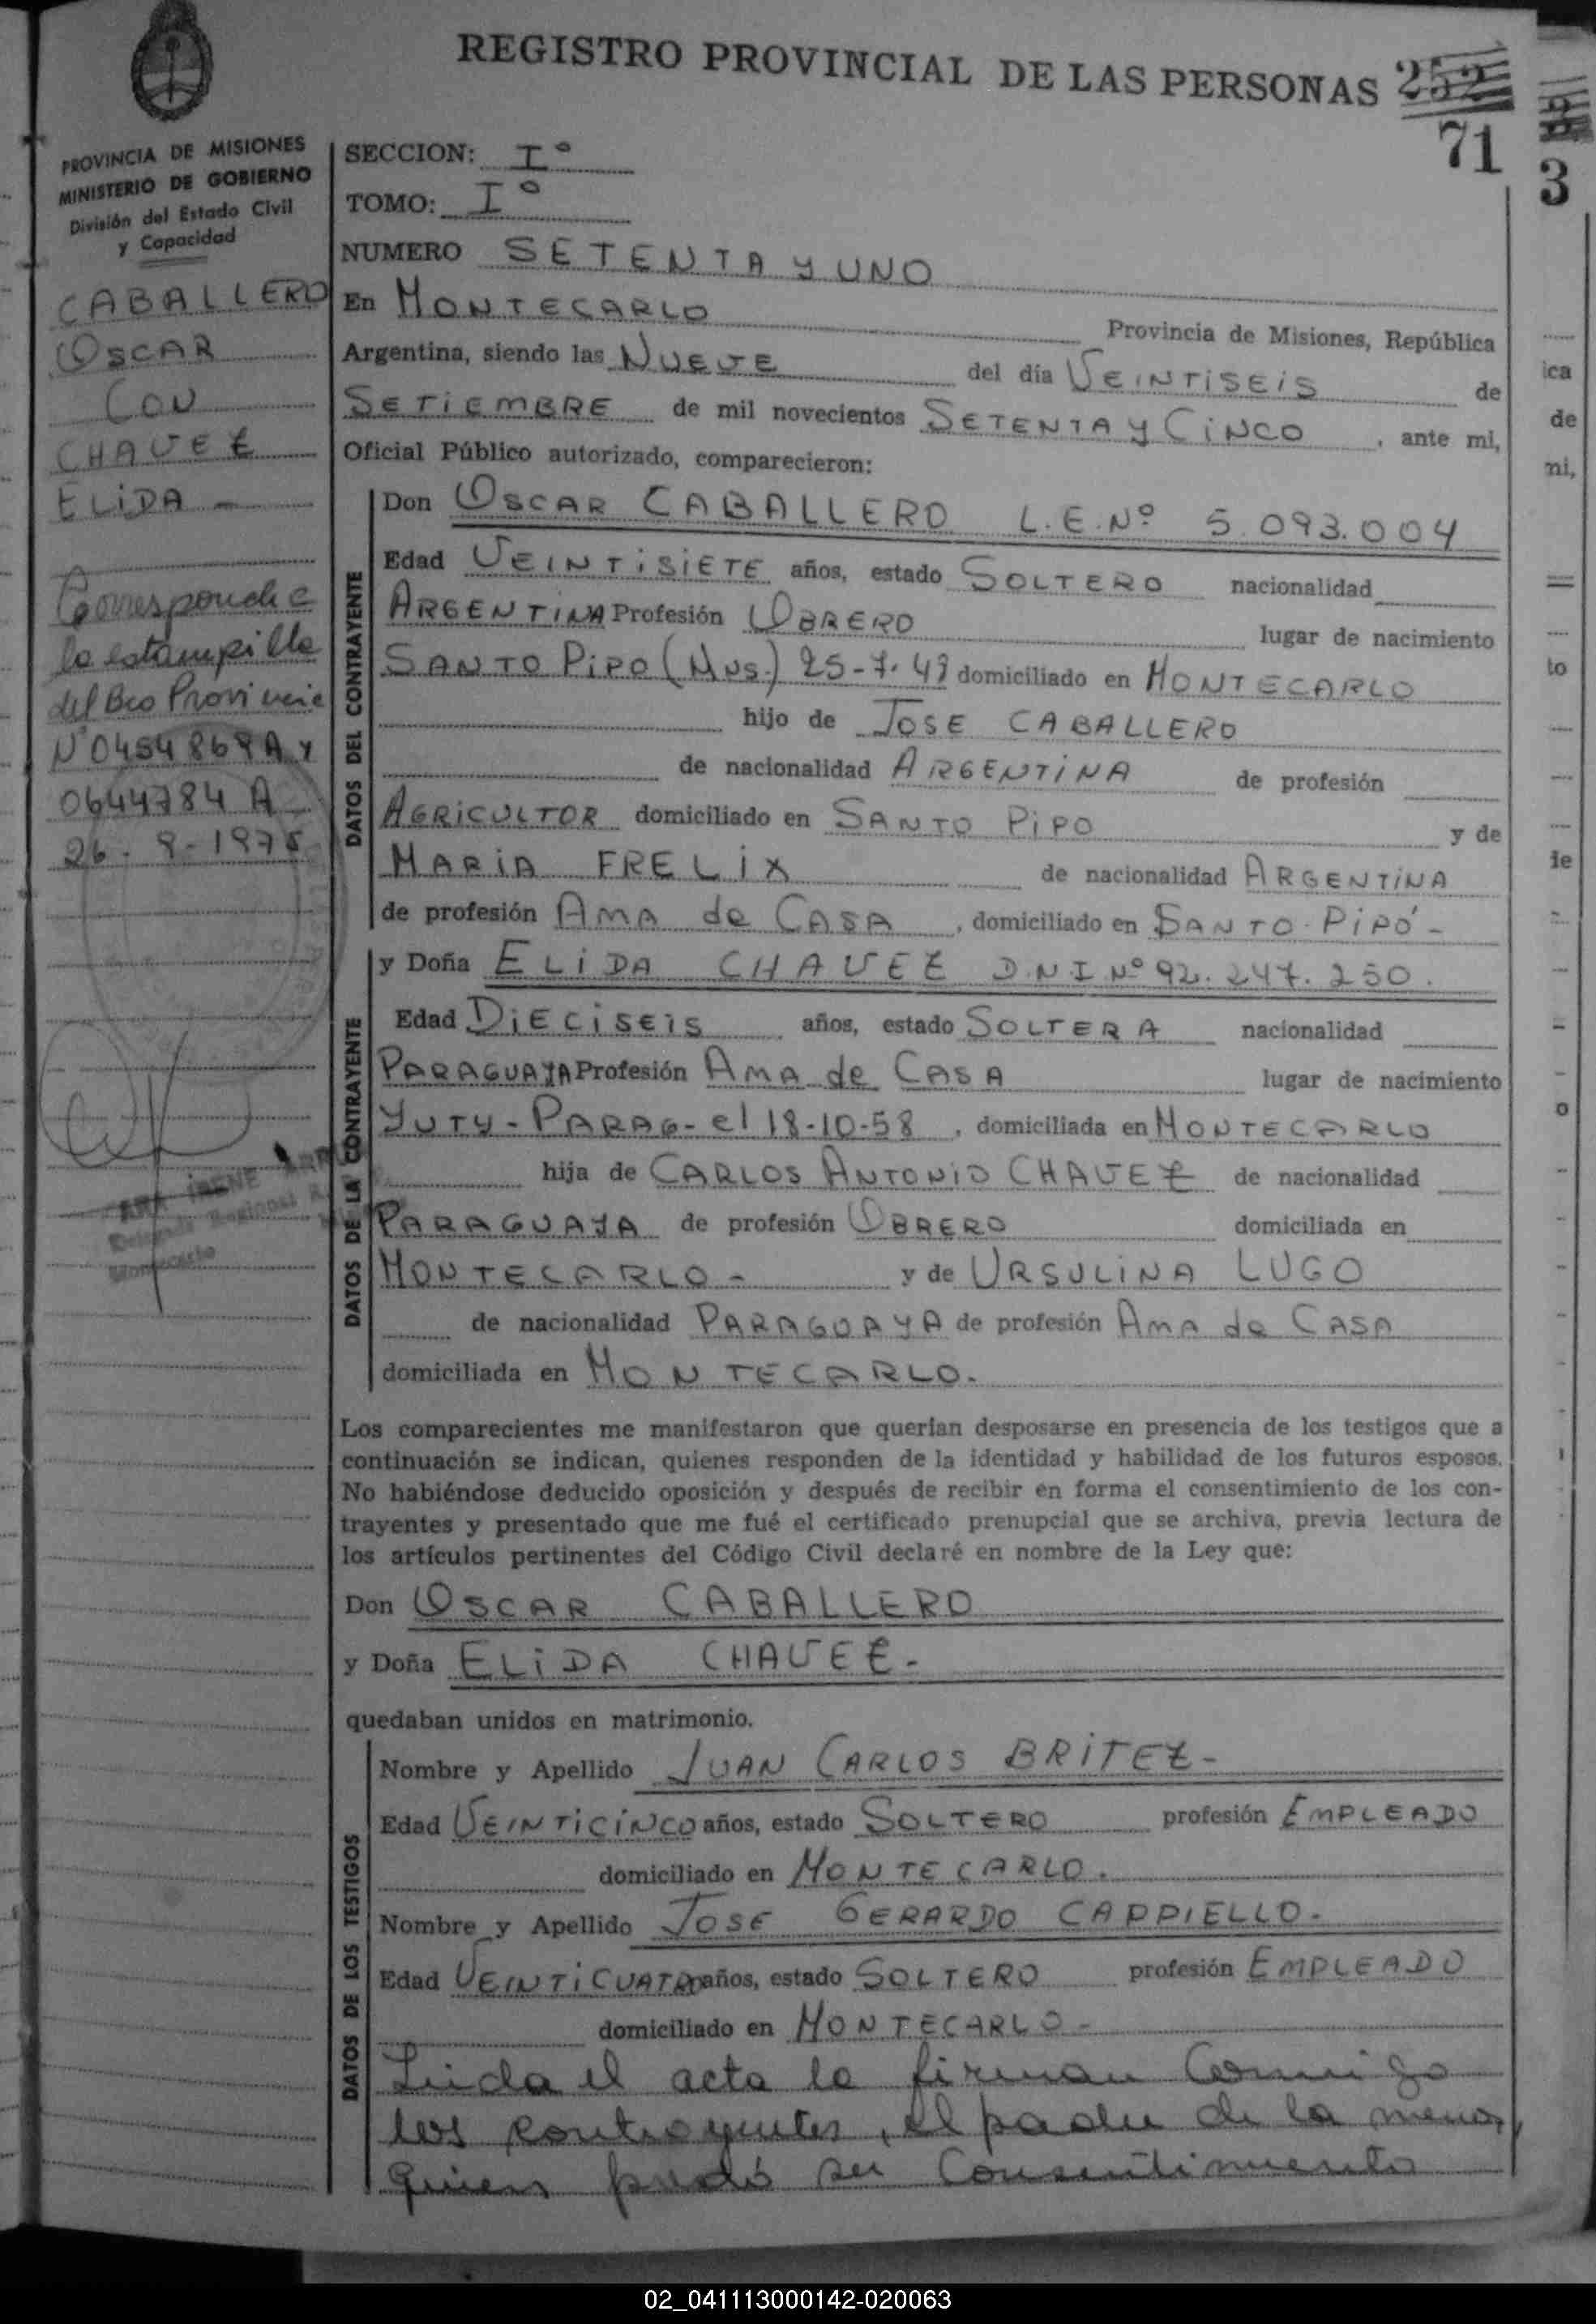 REGISTRO PROVINCIAL DE LAS PERSONAS 252
71
3
PROVINCIA DE MISIONES
MINISTERIO DE GOBIERNO
División del Estado Civil
y Capacidad
CABALLERO
OSCAR
CON
CHAVEZ
ELIDA -
Corresponde a
la estampilla
del Bco Provincia
Nº 0454869 A y
0644784 A
26-9-1975
SECCION: Iº
TOMO: Iº
NUMERO SETENTA y UNO
En MONTECARLO Provincia de Misiones, República
Argentina, siendo las NUEVE del día VEINTISEIS de
SETIEMBRE de mil novecientos SETENTA y CINCO, ante mi,
Oficial Público autorizado, comparecieron:
DATOS DEL CONTRAYENTE
Don OSCAR CABALLERO L.E.Nº 5.093.004
Edad VEINTISIETE años, estado SOLTERO nacionalidad
ARGENTINA Profesión OBRERO lugar de nacimiento
SANTO PIPO (Mns.) 25-7-48 domiciliado en MONTECARLO
hijo de JOSE CABALLERO
de nacionalidad ARGENTINA de profesión
AGRICULTOR domiciliado en SANTO PIPO y de
MARIA FRELIX de nacionalidad ARGENTINA
de profesión AMA de CASA, domiciliado en SANTO PIPÓ -
DATOS DE LA CONTRAYENTE
y Doña ELIDA CHAVEZ D.N.I Nº 92.247.250.
Edad DIECISEIS años, estado SOLTERA nacionalidad
PARAGUAYA Profesión AMA de CASA lugar de nacimiento
YUTY - PARAG - el 18-10-58, domiciliada en MONTECARLO
hija de CARLOS ANTONIO CHAVEZ de nacionalidad
PARAGUAYA de profesión OBRERO domiciliada en
MONTECARLO - y de URSULINA LUGO
de nacionalidad PARAGUAYA de profesión AMA de CASA
domiciliada en MONTECARLO.
Los comparecientes me manifestaron que querían desposarse en presencia de los testigos que a
continuación se indican, quienes responden de la identidad y habilidad de los futuros esposos.
No habiéndose deducido oposición y después de recibir en forma el consentimiento de los con-
trayentes y presentado que me fué el certificado prenupcial que se archiva, previa lectura de
los artículos pertinentes del Código Civil declaré en nombre de la Ley que:
Don OSCAR CABALLERO
y Doña ELIDA CHAVEZ -
quedaban unidos en matrimonio.
DATOS DE LOS TESTIGOS
Nombre y Apellido JUAN CARLOS BRITEZ -
Edad VEINTICINCO años, estado SOLTERO profesión EMPLEADO
domiciliado en MONTECARLO.
Nombre y Apellido JOSE GERARDO CAPPIELLO -
Edad VEINTICUATRO años, estado SOLTERO profesión EMPLEADO
domiciliado en MONTECARLO -
Leida el acta la firman Conmigo
los contrayentes, el padre de la menor,
quien prestó su Consentimiento
02_041113000142-020063